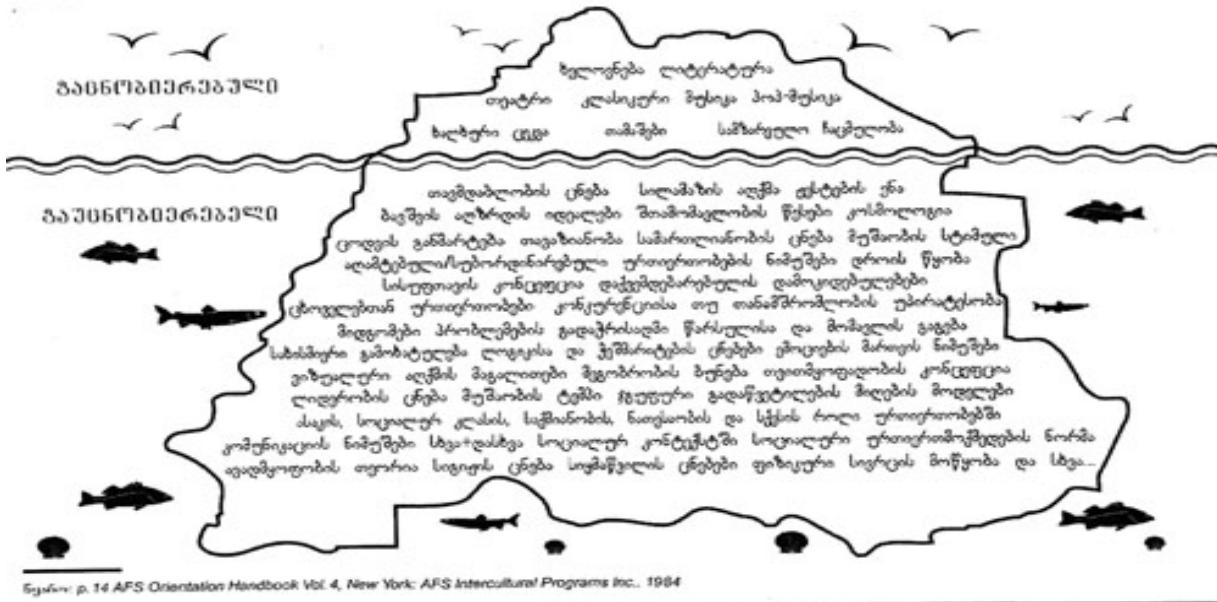 გაცნობიერებული
ხელოვნება ლიტერატურა
თეატრი კლასიკური მუსიკა პოპ-მუსიკა
ხალხური ცეკვა თამაშები სამზარეულო ჩაცმულობა
გაუცნობიერებელი
თავმდაბლობის ცნება სილამაზის აღქმა ჟესტების ენა
ბავშვის აღზრდის იდეალები შთამომავლობის წესები კოსმოლოგია
ცოდვის განმარტება თავაზიანობა სამართლიანობის ცნება მუშაობის სტიმული
აღამტებული/სუბორდინირებული ურთიერთობების ნიმუშები დროის წყობა
სისუფთავის კონცეფცია დაქვემდებარებულის დამოკიდებულებები
ცხოველებთან ურთიერთობები კონკურენციისა თუ თანამშრომლობის უპირატესობა
მიდგომები პრობლემების გადაჭრისადმი წარსულისა და მომავლის გაგება
სახისმიერი გამოხატულება ლოგიკისა და ჭეშმარიტების ცნებები ემოციების მართვის ნიმუშები
ვიზუალური აღქმის მაგალითები მეგობრობის ბუნება თვითმყოფადობის კონცეფცია
ლიდერობის ცნება მუშაობის ტემპი ჯგუფური გადაწვეტილების მიღების მოდელები
ასაკის, სოციალურ კლასის, საქმიანობის, ნათესაობის და სქესის როლი ურთიერთობებში
კომუნიკაციის ნიმუშები სხვა+დასხვა სოციალურ კონტექსტში სოციალური ურთიერთმოქმედების ნორმა
ავადმყოფობის თეორია სიგიჟის ცნება სიყმაწვილის ცნებები ფიზიკური სივრცის მოწყობა და სხვა...
წყარო: p. 14 AFS Orientation Handbook Vol. 4, New York: AFS Intercultural Programs Inc., 1984